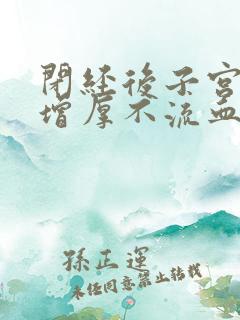 閉經後子宮
增厚不流血
孫正運
未经同意禁止转载